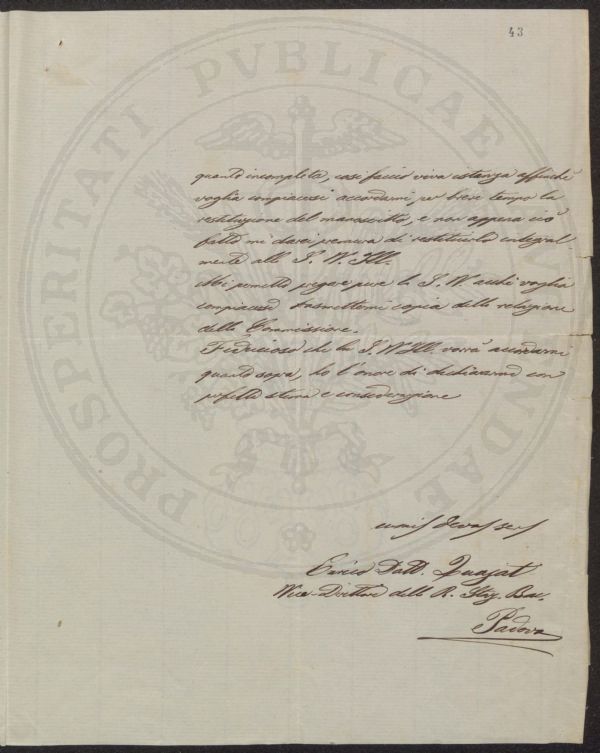 43
PROSPERITATI PVBLICAE
quanto incompleto, così faccio viva istanza affinchè
voglia compiacersi accordarmi per breve tempo la
restituzione del manoscritto, e non appena ciò
fatto mi darei premura di restituirlo integral
mente alla S. V. Ill.
Mi permetto pregare pure la S. V. acchè voglia
compiacersi trasmettermi copia della relazione
della Commissione.
Fiducioso che la S. V. Ill. vorrà accordarmi
quanto sopra, ho l'onore di dichiararmi con
perfetta stima e considerazione
umis devot ser
Enrico Dott. Quajat
Vice-Direttore della R. Staz. Bac.
Padova